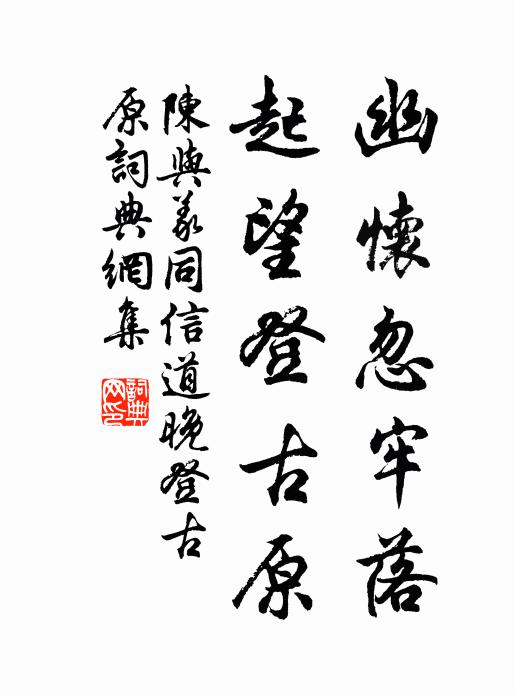 幽懷忽牢落
起望登古原
陳與義同信道晚登古
原詞典網集
詞典
网印